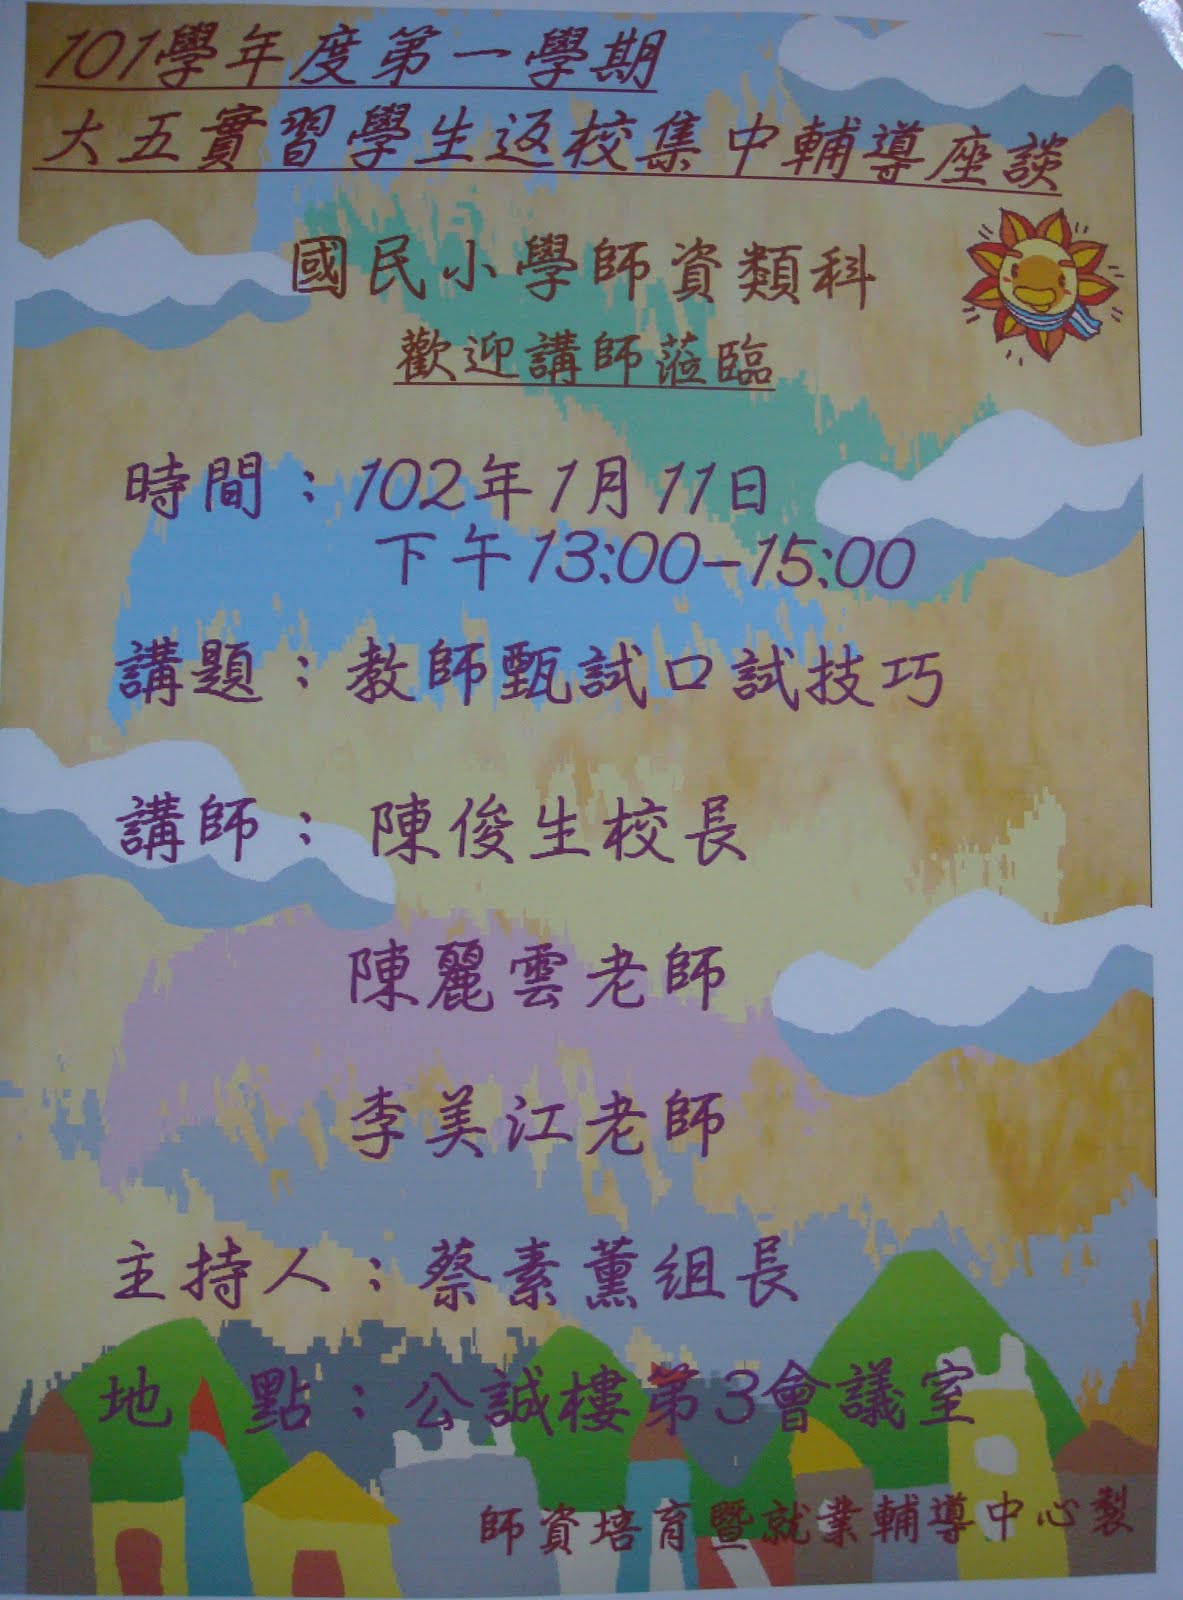 101學年度第一學期
大五實習學生返校集中輔導座談
國民小學師資類科
歡迎講師蒞臨
時間：102年1月11日
下午13:00-15:00
講題：教師甄試口試技巧
講師：陳俊生校長
陳麗雲老師
李美江老師
主持人：蔡素薰組長
地 點：公誠樓第3會議室
師資培育暨就業輔導中心製